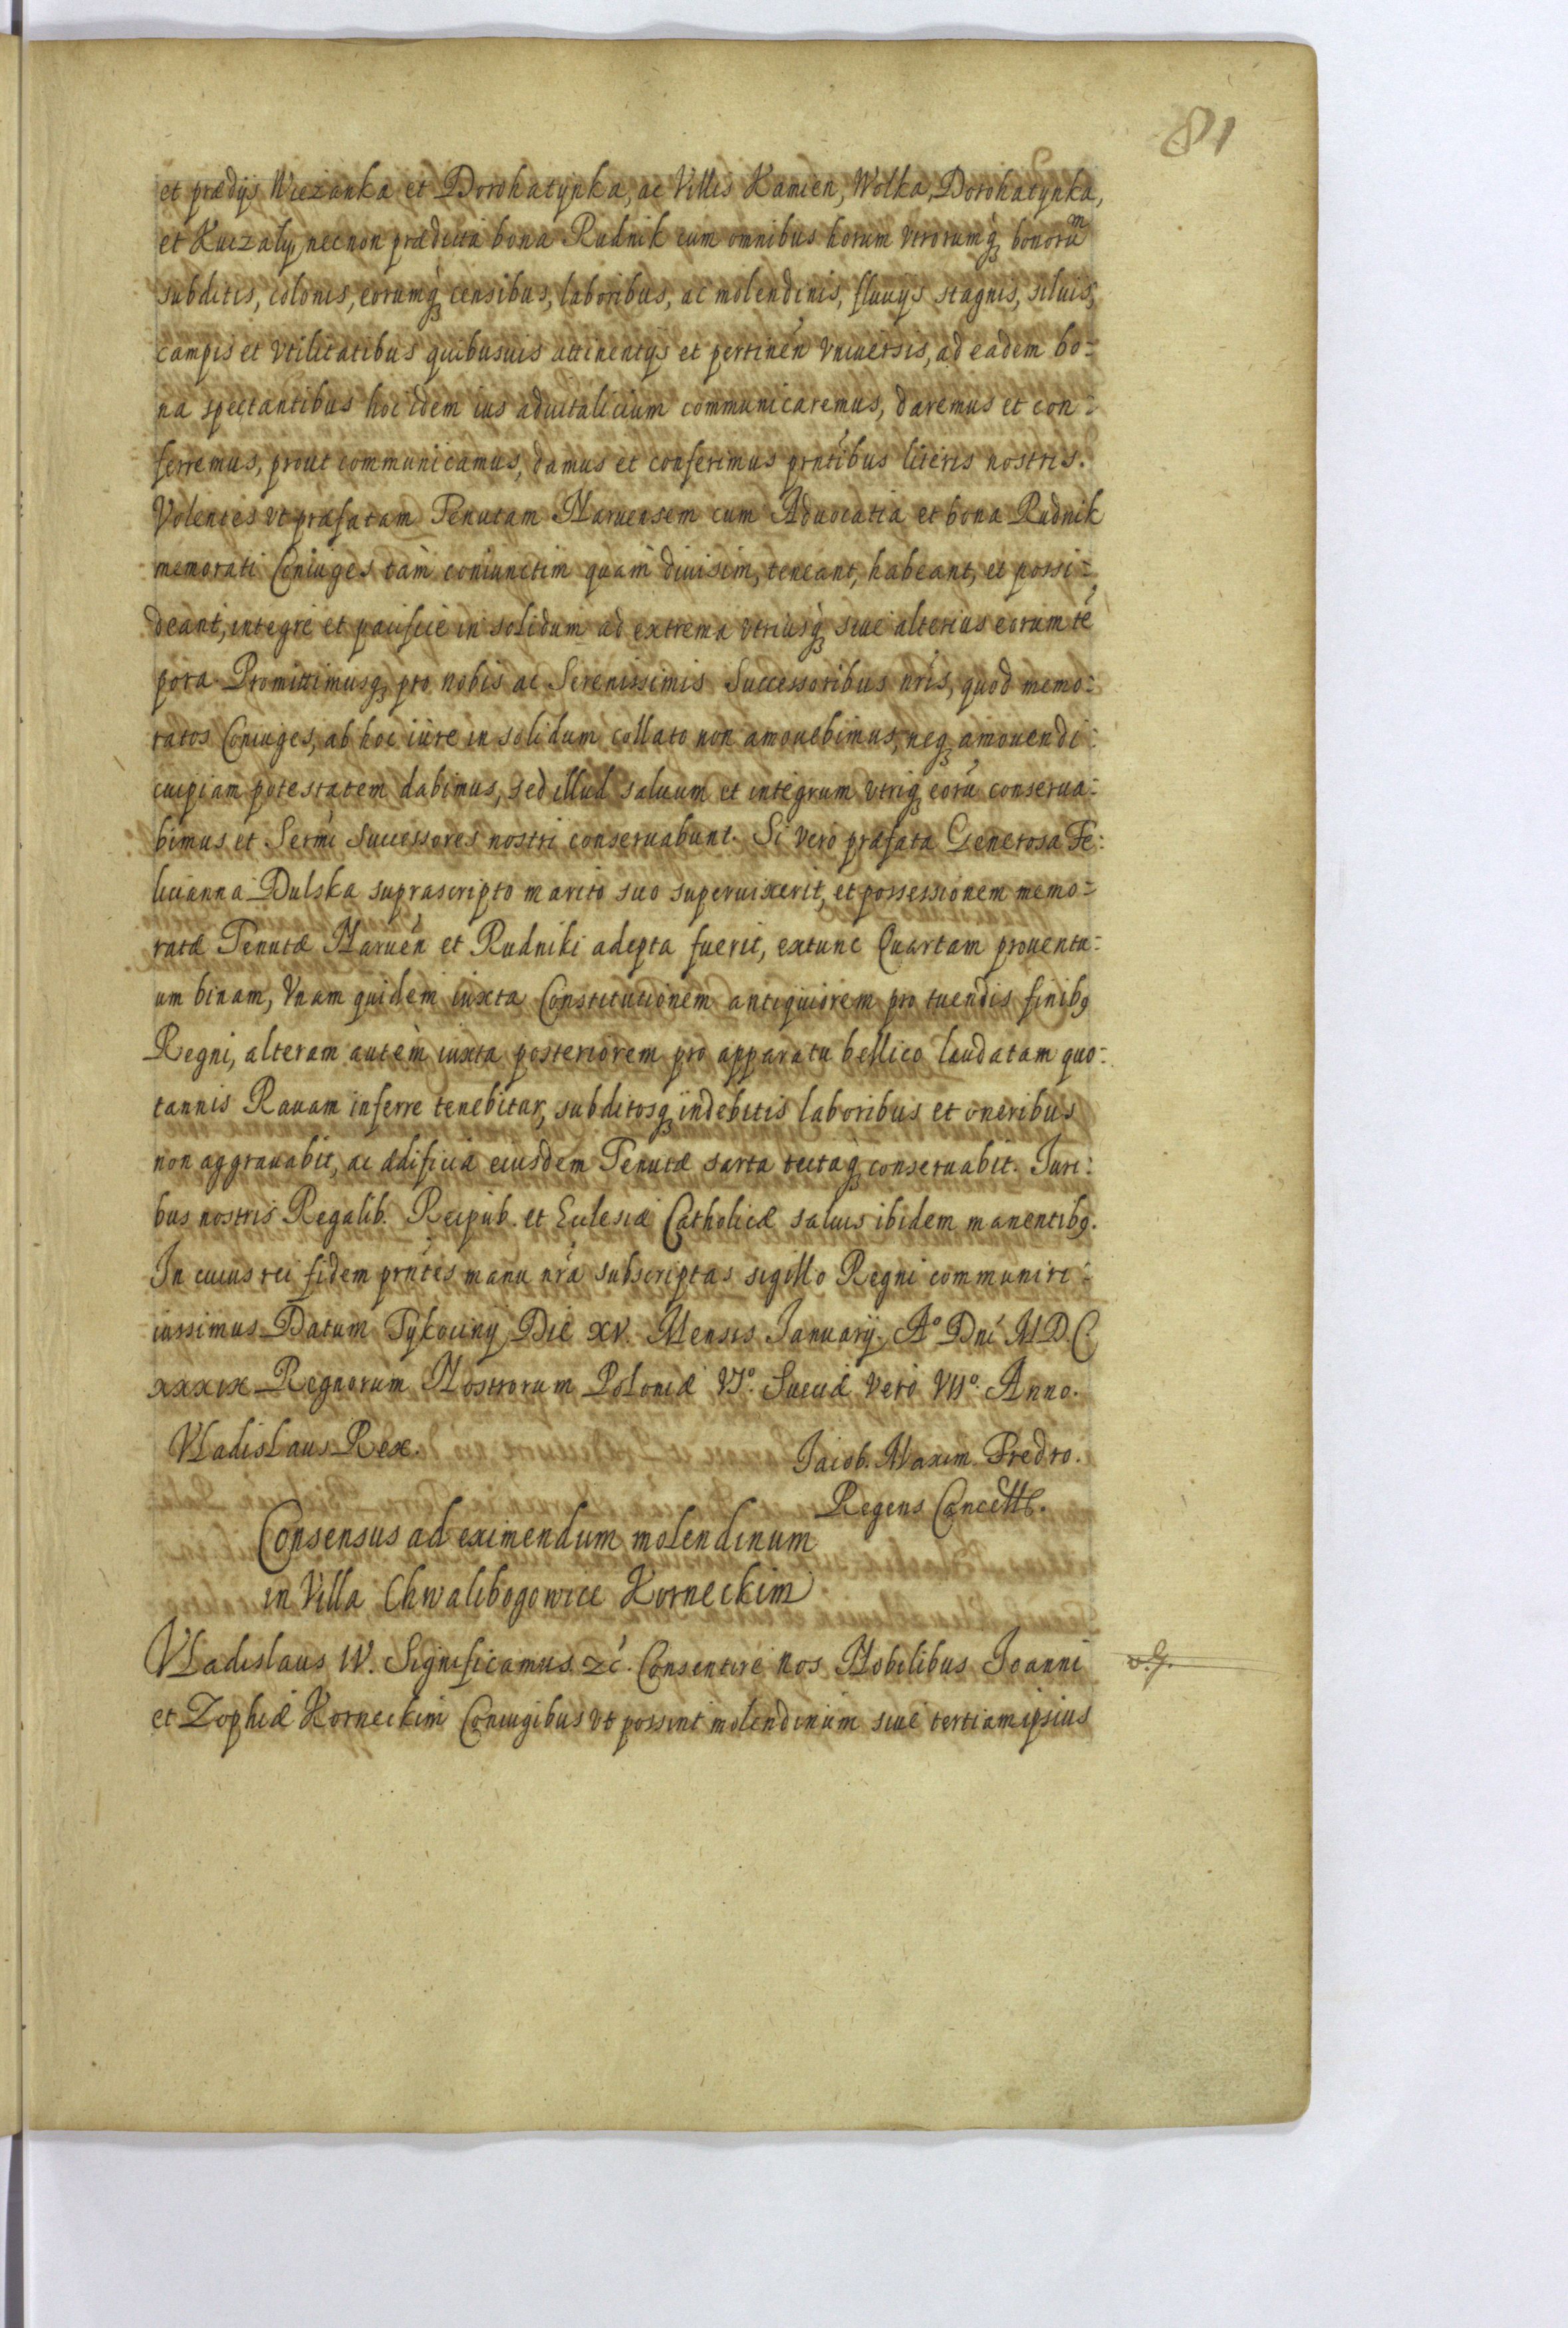 81
et prædijs Niezanka et Dorohatynka, ac Villis Kamien, Wolka, Dorohatynka,
et Kuczaly, necnon prædicta bona Rudnik cum omnibus horum vtrorumq; bonorum
subditis, colonis, eorumq; censibus, laboribus, ac molendinis, fluuijs stagnis, siluis,
campis et vtilitatibus quibusuis attinentijs et pertinen vniuersis, ad eadem bo-
na spectantibus hoc idem ius aduitalicium communicaremus, daremus et con-
ferremus, prout communicamus, damus et conferimus prntibus literis nostris.
Volentes vt præfatam Tenutam Naruensem cum Aduocatia et bona Rudnik
memorati Coniuges tàm coniunctim quàm diuisim, teneant, habeant, et possi-
deant, integrè et pacificè in solidum ad extrema vtriusq; siue alterius eorum té
pora. Promittimusq; pro nobis ac Serenissimis Successoribus nris, quod memo-
ratos Coniuges, ab hoc iure in solidum collato non amouebimus, neq; amouendi
cuipiam potestatem dabimus, sed illud saluum et integrum vtriq; eorú conserua-
bimus et Sermi Successores nostri conseruabunt. Si verò præfata Generosa Fe:
licianna Dulska suprascripto marito suo superuixerit, et possessionem memo-
ratæ Tenutæ Naruen et Rudniki adepta fuerit, extunc Quartam prouentu-
um binam, Vnam quidem iuxta Constitutionem antiquiorem pro tuendis finibq
Regni, alteram autèm iuxta posteriorem pro apparatu bellico laudatam quo-
tannis Rauam inferre tenebitur, subditosq; indebitis laboribus et oneribus
non aggrauabit, ac ædificia eiusdem Tenutæ sarta tectaq; conseruabit. Juri:
bus nostris Regalib. Reipub. et Ecclesiæ Catholicæ saluis ibidem manentibq.
In cuius rei fidem prntes manu nra subscriptas sigillo Regni communiri
iussimus. Datum Tykociny Die XV. Mensis Januarij. Aº Dni M.D.C.
XXXIX Regnorum Nostrorum Poloniæ VIº. Sueciæ verò VIIº. Anno.
Vladislaus Rex.
Jacob. Maxim. Fredro.
Regens Cancell.
Consensus ad eximendum molendinum
in Villa Chwalibogowice Korneckim
Vladislaus IV. Significamus &c. Consentire nos Nobilibus Joanni
et Zophiæ Korneckim Coniugibus vt possint molendinum siue tertiam ipsius